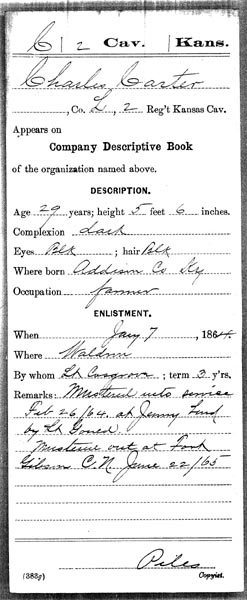 C | 2 Cav. | Kans.
Charles Carter
, Co. L, 2 Reg't Kansas Cav.
Appears on
Company Descriptive Book
of the organization named above.
DESCRIPTION.
Age 29 years; height 5 feet 6 inches.
Complexion dark
Eyes Blk ; hair Blk
Where born Addison Co Ky
Occupation farmer
ENLISTMENT.
When Jany 7, 1864.
Where Waldron
By whom Lt Cosgrove ; term 3 y'rs.
Remarks: Mustered into service
Feb 26/64 at Jenny Lind
by Lt Gould.
Mustered out at Fort
Gibson C.N. June 22/65
Piles
(383g) Copyist.